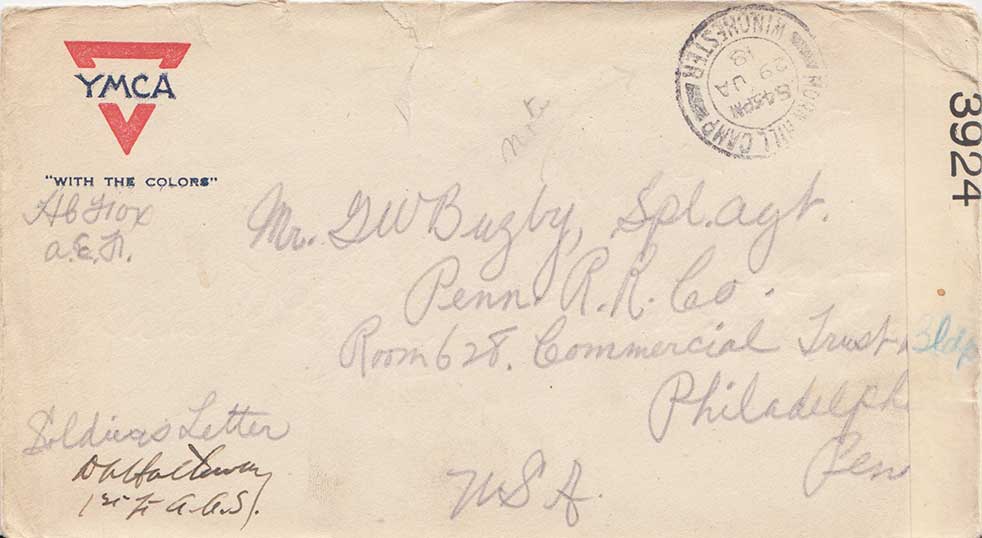 YMCA
"WITH THE COLORS"
MORN HILL CAMP
WINCHESTER
5 45PM
29 JA
18
3924
A.E.F.
Mr. G W Buzby, Spl. agt.
Penn. R.R. Co.
Room 628. Commercial Trust Bldg
Philadelph
Pen
U S A.
Soldiers Letter